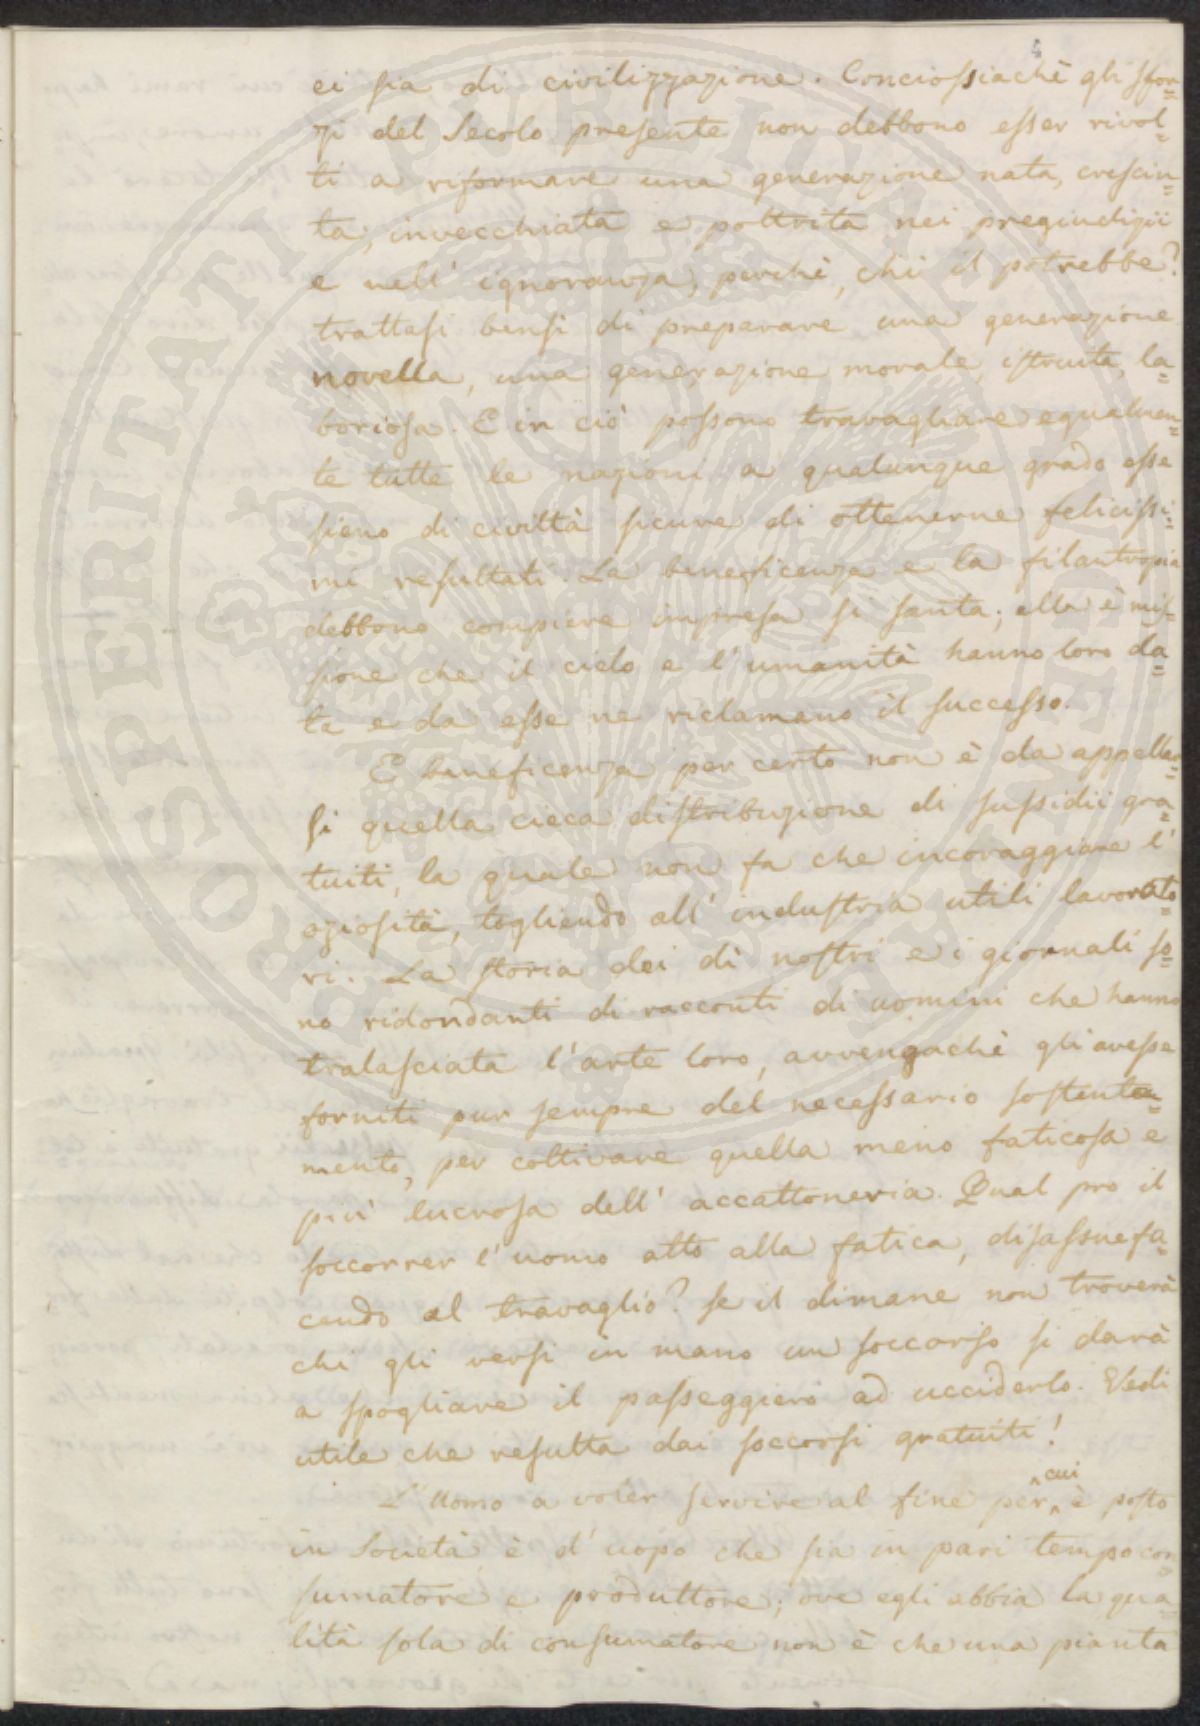 4
ei sia di civilizzazione. Conciossiachè gli sfor=
zi del Secolo presente non debbono esser rivol=
ti a riformare una generazione nata, cresciu=
ta, invecchiata e poltrita nei pregiudizii
e nell' ignoranza, perchè, chi il potrebbe?
trattasi bensì di preparare una generazione
novella, una generazione morale, istruita, la=
boriosa. E in ciò possono travagliare egualmen=
te tutte le nazioni a qualunque grado esse
sieno di civiltà sicure di ottenerne felicissi=
mi resultati. La beneficenza e la filantropia
debbono compiere impresa sì santa; ella è mis=
sione che il cielo e l' umanità hanno loro da=
ta e da esse ne riclamano il successo.
E beneficenza per certo non è da appellar=
si quella cieca distribuzione di sussidii gra=
tuiti, la quale non fa che incoraggiare l'
oziosità, togliendo all' industria utili lavorato=
ri. La storia dei dì nostri e i giornali so=
no ridondanti di racconti di uomini che hanno
tralasciata l'arte loro, avvengachè gli avesse
forniti pur sempre del necessario sostenta=
mento, per coltivare quella meno faticosa e
più lucrosa dell' accattoneria. Qual pro il
soccorrer l'uomo atto alla fatica, disassuefa=
cendo al travaglio? se il dimane non troverà
chi gli versi in mano un soccorso si darà
a spogliare il passeggiero ad ucciderlo. Vedi
utile che resulta dai soccorsi gratuiti!
L'Uomo a voler servire al fine per cui è posto
in Società è d' uopo che sia in pari tempo con=
sumatore e produttore; ove egli abbia la qua=
lità sola di consumatore non è che una pianta
PROSPERITATI PUBLICAE AUGENDAE